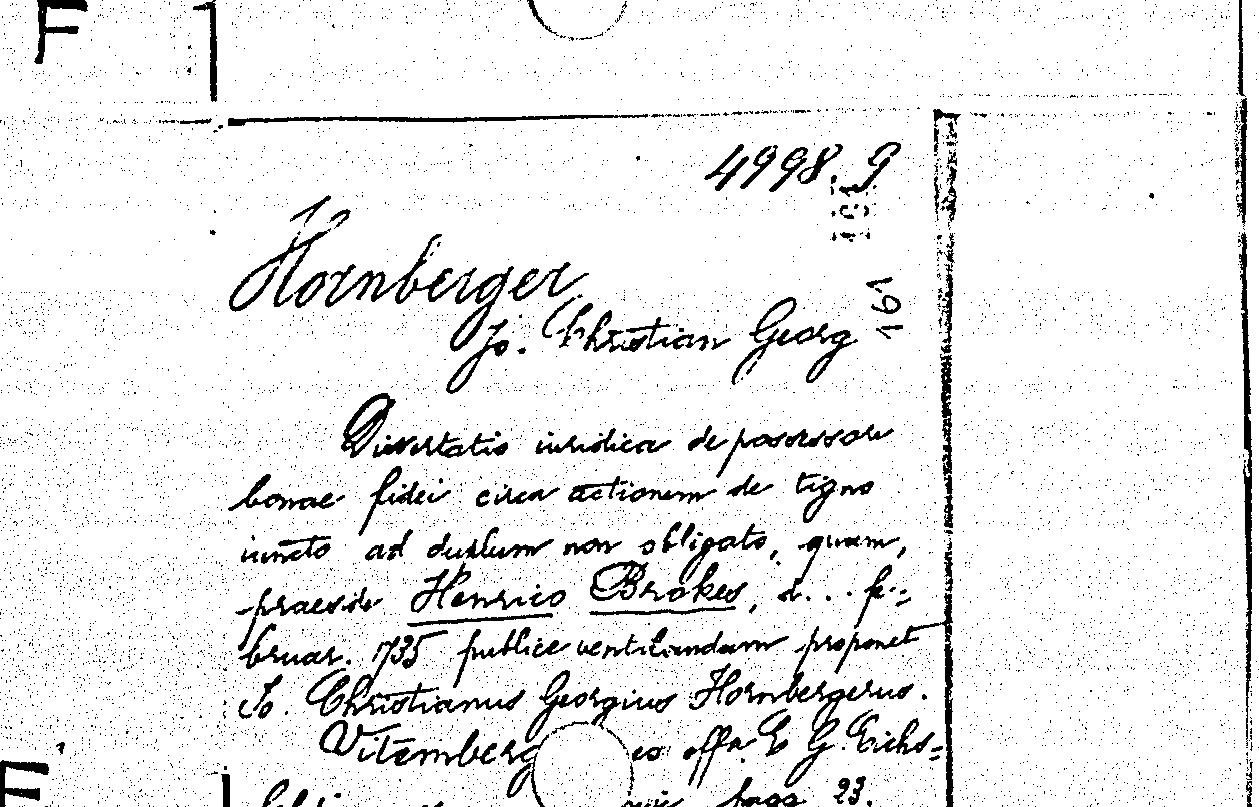 F
4998. 9
161
Hornberger
Jo. Christian Georg
Dissertatio iuridica de possessore
bonae fidei circa actionem de tigno
iuncto ad duplum non obligato, quam,
praeside Henrico Brokes, d... fe-
bruar. 1735 publice ventilandam proponet
Jo. Christianus Georgius Hornbergerus.
Vitemberg ex offn. E G. Eichs-
F pagg 23.